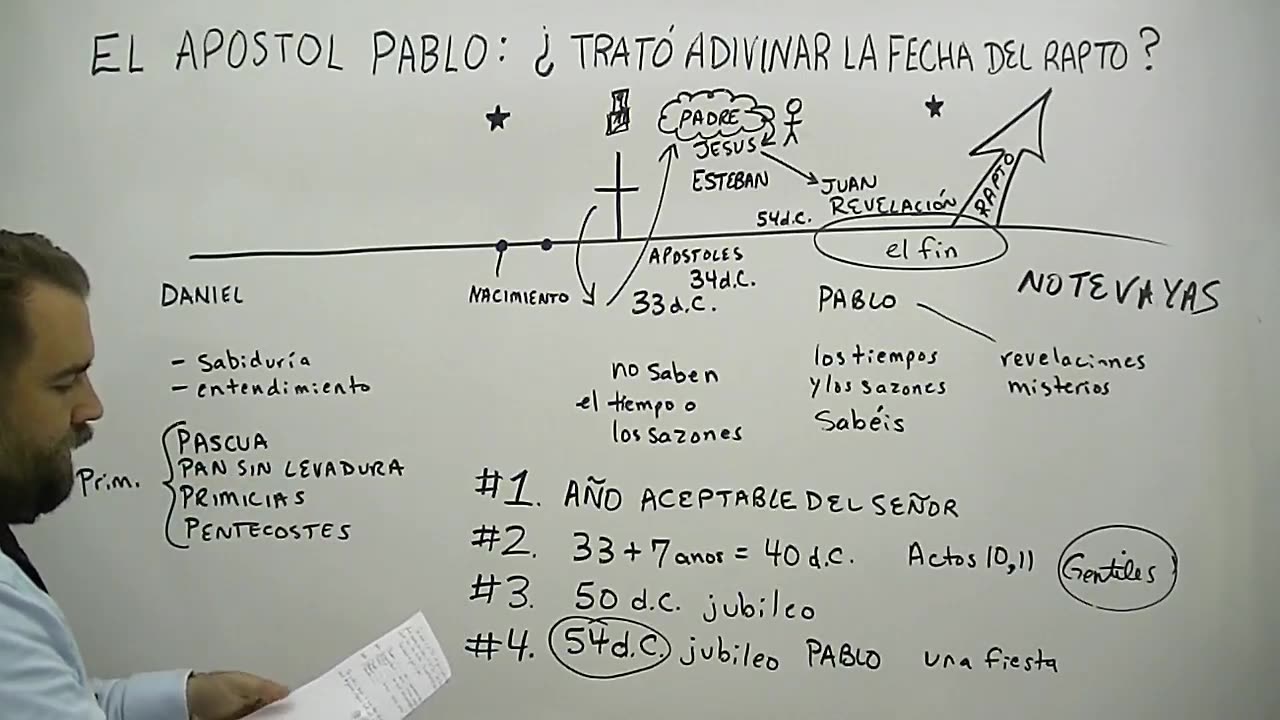 EL APOSTOL PABLO: ¿TRATÓ ADIVINAR LA FECHA DEL RAPTO?
PADRE
JESUS
ESTEBAN
JUAN
REVELACIÓN
RAPTO
54 d.C.
el fin
APOSTOLES
34 d.C.
33 d.C.
NACIMIENTO
DANIEL
PABLO
NO TE VAYAS
- Sabiduría
- entendimiento
no saben
el tiempo o
los sazones
los tiempos
y los sazones
Sabéis
revelaciones
misterios
Prim.
PASCUA
PAN SIN LEVADURA
PRIMICIAS
PENTECOSTES
#1. AÑO ACEPTABLE DEL SEÑOR
#2. 33 + 7 anos = 40 d.C. Actos 10,11 Gentiles
#3. 50 d.C. jubileo
#4. 54 d.C. jubileo PABLO una fiesta